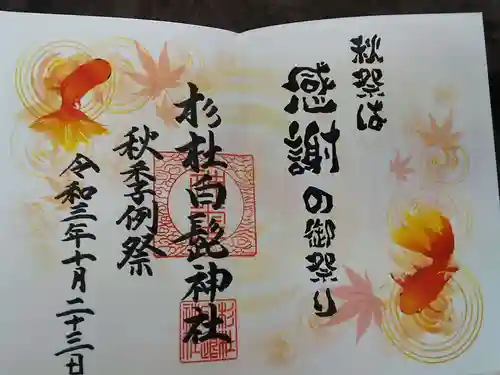 秋祭は
感謝の御祭り
杉杜白髭神社
秋季例祭
令和三年十月二十三日